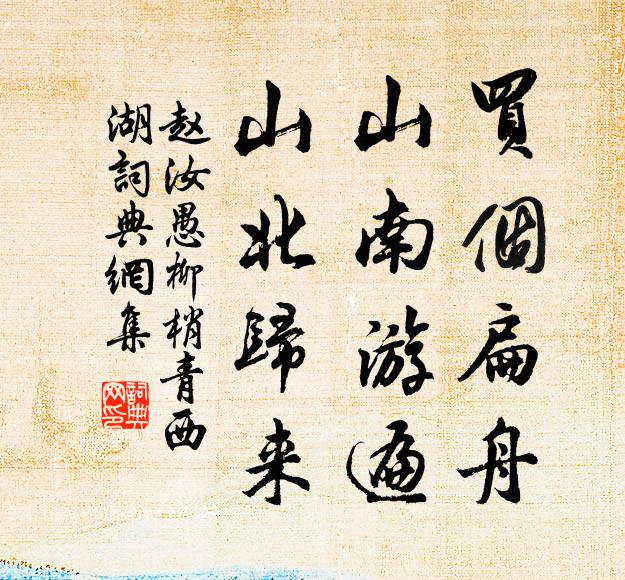 買個扁舟
山南游遍
山北歸来
赵汝愚柳梢青西
湖詞典網集
詞典
网